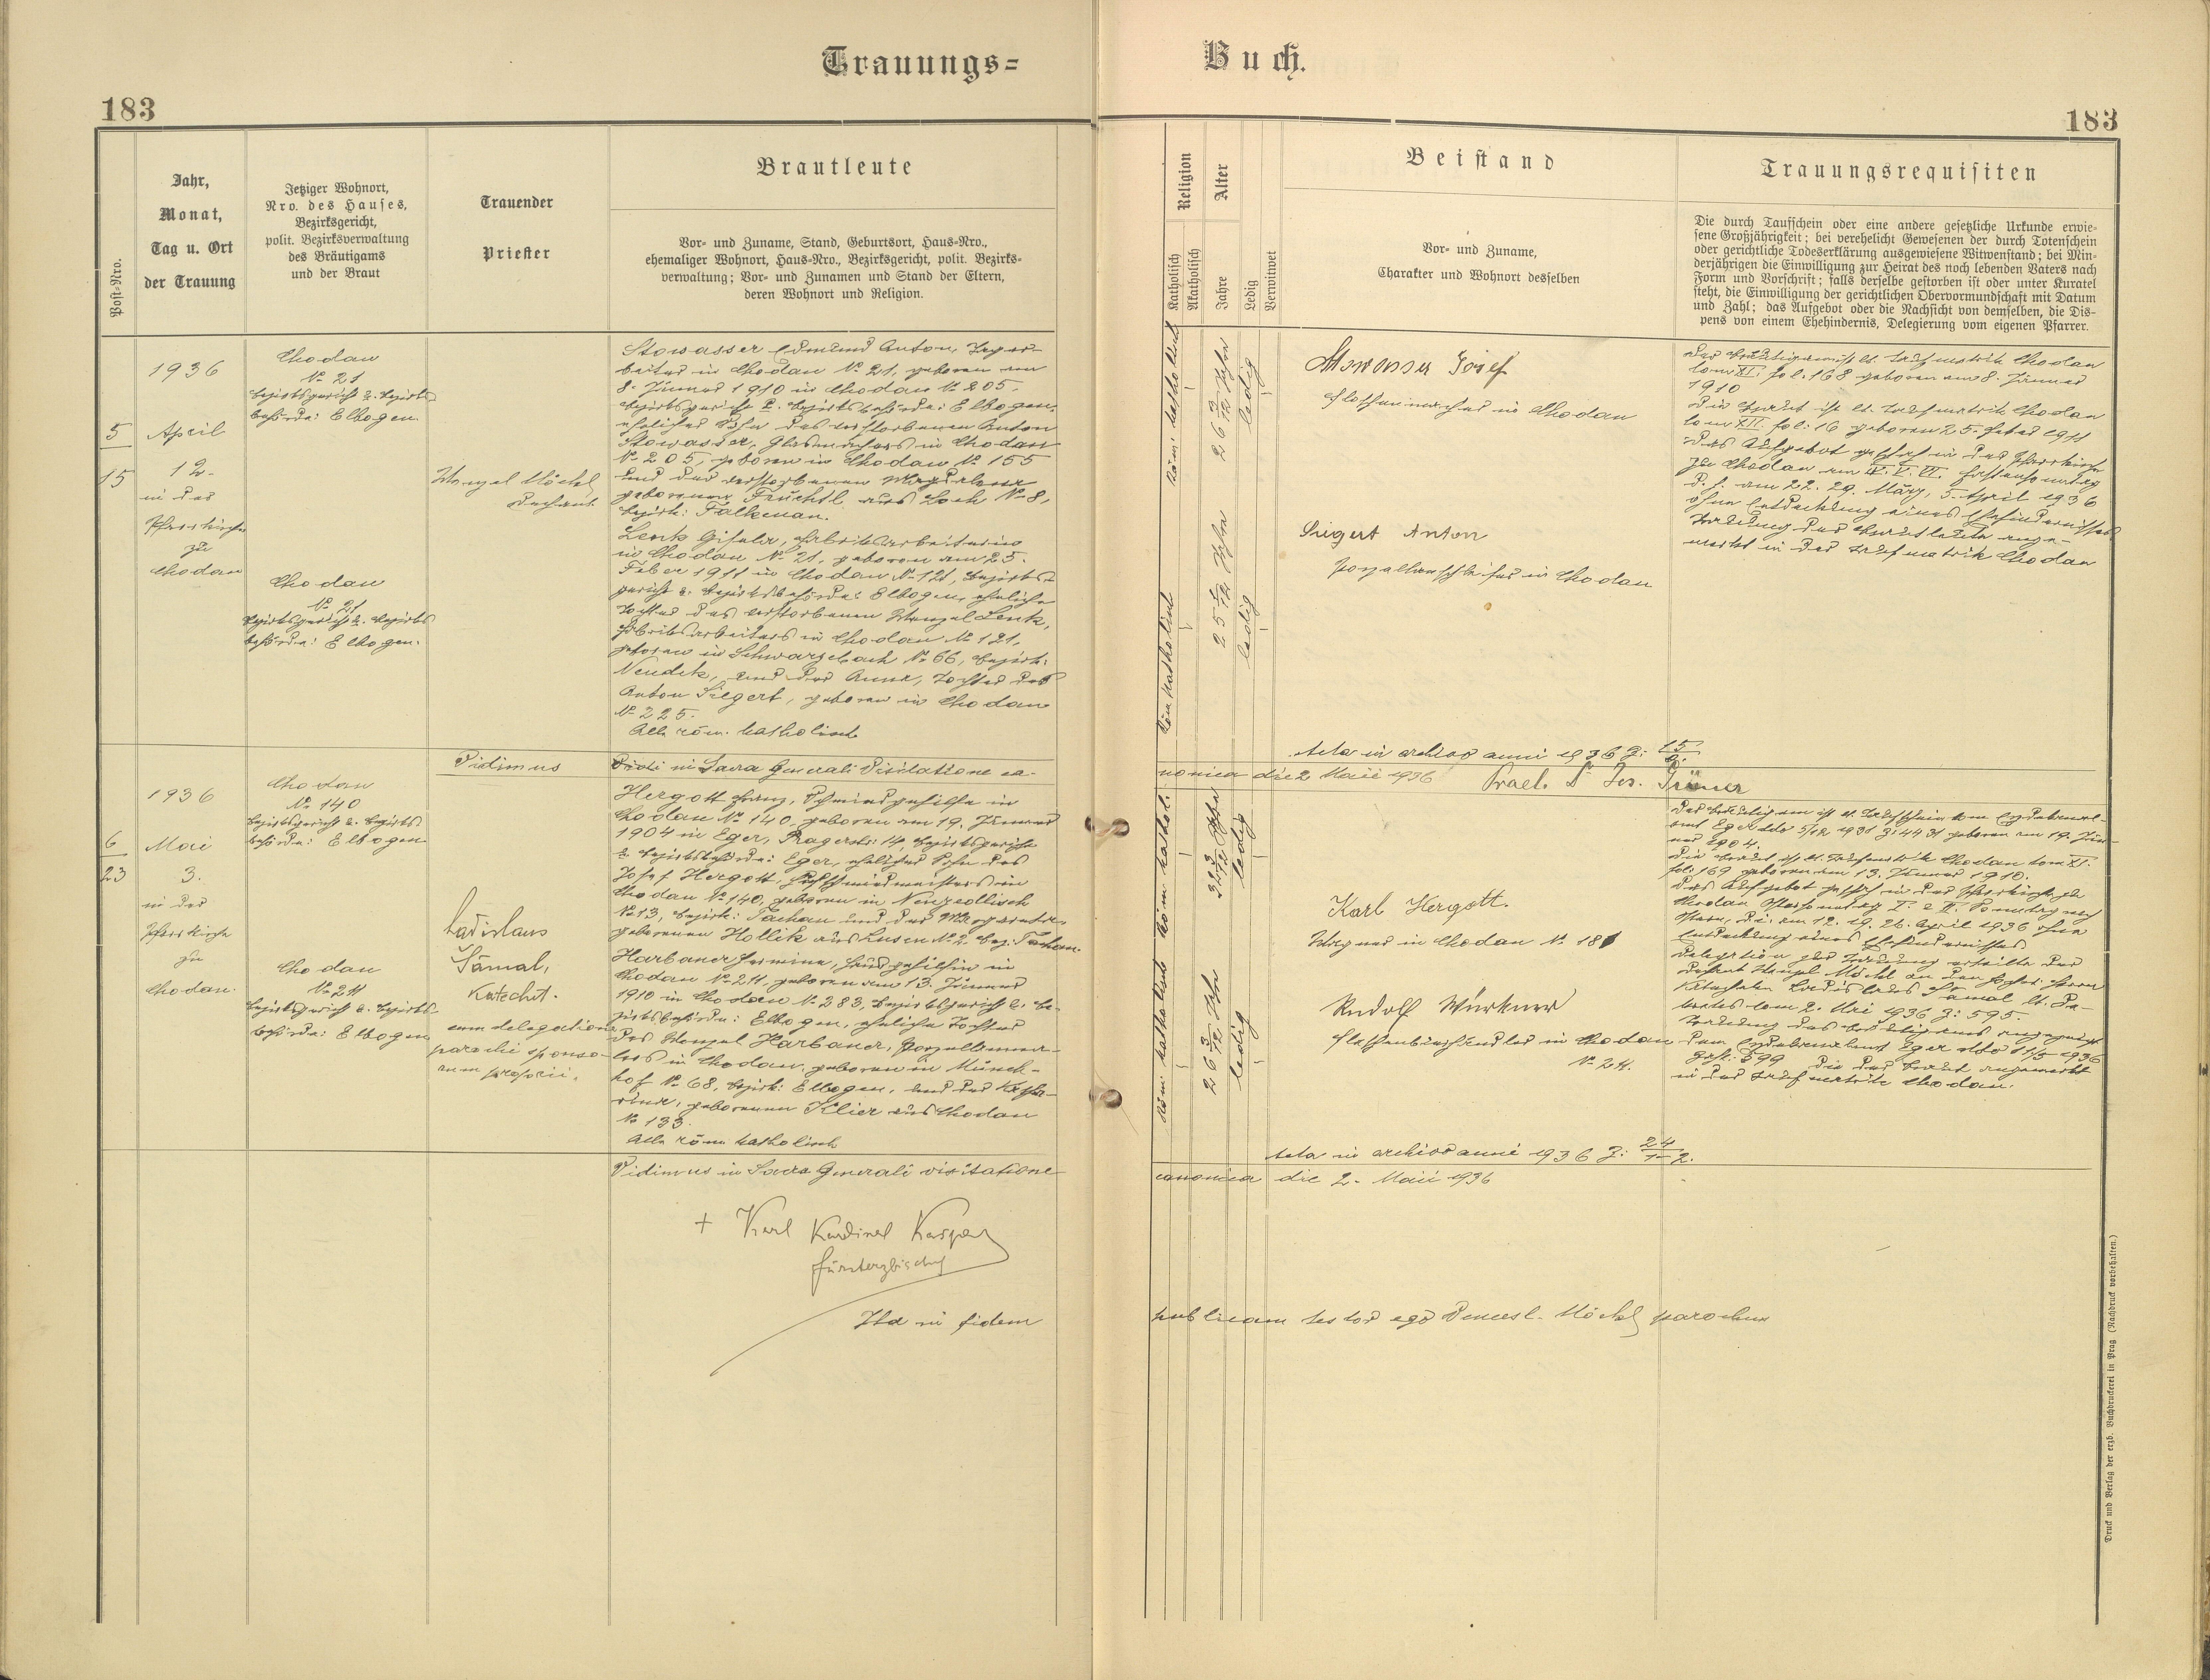 Trauungs=
Buch.
183
183
Post-Nro.
Jahr,
Monat,
Tag u. Ort
der Trauung
Jetziger Wohnort,
Nro. des Hauses,
Bezirksgericht,
polit. Bezirksverwaltung
des Bräutigams
und der Braut
Trauender
Priester
Brautleute
Vor- und Zuname, Stand, Geburtsort, Haus-Nro.,
ehemaliger Wohnort, Haus-Nro., Bezirksgericht, polit. Bezirks-
verwaltung; Vor- und Zunamen und Stand der Eltern,
deren Wohnort und Religion.
Religion
Katholisch
Akatholisch
Alter
Jahre
Ledig
Verwitwet
Beistand
Vor- und Zuname,
Charakter und Wohnort desselben
Trauungsrequisiten
Die durch Taufschein oder eine andere gesetzliche Urkunde erwie-
sene Großjährigkeit; bei verehelicht Gewesenen der durch Totenschein
oder gerichtliche Todeserklärung ausgewiesene Witwenstand; bei Min-
derjährigen die Einwilligung zur Heirat des noch lebenden Vaters nach
Form und Vorschrift; falls derselbe gestorben ist oder unter Kuratel
steht, die Einwilligung der gerichtlichen Obervormundschaft mit Datum
und Zahl; das Aufgebot oder die Nachsicht von demselben, die Dis-
pens von einem Ehehindernis, Delegierung vom eigenen Pfarrer.
5
15
1936
April
12.
in der
Pfarrkirche
zu
Chodau
Chodau
№ 21
Bezirksgericht u. Bezirks
behörde: Elbogen.
Chodau
№ 21
Bezirksgericht u. Bezirks
behörde: Elbogen.
Wenzel Möckl
Dechant.
Stowasser Edmund Anton, Tagar-
beiter in Chodau № 21, geboren am
8. Jänner 1910 in Chodau № 205.
Bezirksgericht u. Bezirksbehörde: Elbogen,
ehelicher Sohn des verstorbenen Anton
Stowasser, Glasmachers in Chodau
№ 205, geboren in Chodau № 155
und der verstorbenen Magdalena
geborenen Früchtl aus Loch № 8,
Bezirk: Falkenau.
Lenk Gisela, Fabriksarbeiterin
in Chodau № 21, geboren am 25.
Feber 1911 in Chodau № 121, Bezirks-
gericht u. Bezirksbehörde: Elbogen, eheliche
Tochter des verstorbenen Wenzel Lenk,
Fabriksarbeiters in Chodau № 121,
geboren in Schwarzbach № 66, Bezirk:
Neudek, und der Anna, Tochter des
Anton Siegert, geboren in Chodau
№ 225.
Alle röm. katholisch
röm. katholisch
röm. katholisch
26 3/12 Jahre
25 1/12 Jahre
ledig
ledig
Stowasser Josef
Flaschenmacher in Chodau
Siegert Anton
Porzellanschleifer in Chodau
Der Bräutigam ist lt. Taufmatrik Chodau
tom XI. fol. 168 geboren am 8. Jänner
1910
Die Braut ist lt. Taufmatrik Chodau
tom XII. fol: 16 geboren 25. Feber 1911
Das Aufgebot geschah in der Pfarrkirche
zu Chodau am IV. V. VI. Fastensonntag
d. i. am 22. 29. März, 5. April 1936
ohne Entdeckung eines Ehehindernisses
Trauung der Brautleute ange-
merkt in der Taufmatrik Chodau
Acta in archivo anni 1936 Z: 15/6.
Vidimus
Vidi in Sacra Generali Visitatione ca-
nonica die 2 Maii 1936
Prael. Dr Jos.
6
23
1936
Mai
3.
in der
Pfarrkirche
zu
Chodau.
Chodau
№ 140
Bezirksgericht u. Bezirks-
behörde: Elbogen
Chodau
№ 211
Bezirksgericht u. Bezirks-
behörde: Elbogen
Ladislaus
Šámal,
Katechet.
cum delegatione
parochi sponso-
rum proprii.
Hergott Franz, Schmiedgehilfe in
Chodau № 140, geboren am 19. Jänner
1904 in Eger, Pragerstr: 14, Bezirksgericht
u. Bezirksbehörde: Eger, ehelicher Sohn des
Josef Hergott, Hufschmiedmeisters in
Chodau № 140, geboren in Neuzedlisch
№ 13, Bezirk: Tachau und der Margareta
geborenen Hollik aus Lusen № 2. Bez. Tachau.
Harbauer Hermine, Handgehilfin in
Chodau № 211, geboren am 13. Jänner
1910 in Chodau № 283, Bezirksgericht u. Be-
zirksbehörde: Elbogen, eheliche Tochter
des Wenzel Harbauer, Porzellanma-
lers in Chodau, geboren in Münch-
hof № 68, Bezirk: Elbogen, und der Katha-
rina, geborenen Klier aus Chodau
№ 133.
Alle röm katholisch
röm. kathol.
röm. katholisch
32 3/12 Jahre
26 3/12 Jahre
ledig
ledig
Karl Hergott.
Wagner in Chodau № 181
Rudolf Würkner
Flaschenbierhändler in Chodau
№ 24.
Der Bräutigam ist lt. Taufschein vom Erzdekanal-
amt Eger dto 5/12 1931 Z: 4431 geboren am 19. Jän-
ner 1904.
Die Braut ist lt. Taufmatrik Chodau tom XI.
fol: 169 geboren am 13. Jänner 1910.
Das Aufgebot geschah in der Pfarrkirche zu
Chodau Ostersonntag I. u. II. Sonntag nach
Ostern, d. i. am 12. 19. 26. April 1936 ohne
Entdeckung eines Ehehindernisses
Delegation zur Trauung erteilte der
Dechant Wenzel Möckl an den hochw. Herrn
Katecheten Ladislaus Šámal lt. De-
kretes vom 2. Mai 1936 Z: 595.
Trauung des Bräutigams angezeigt
dem Erzdekanalamt Eger dto 11/5 1936
die der Braut angemerkt
in der Taufmatrik Chodau.
Acta in archivo anni 1936 Z: 24/1-2.
Vidimus in Sacra Generali visitatione
canonica die 2. Maii 1936
+ Karl Kardinal Kaspar
Fürsterzbischof
Ita in fidem
publicam testor ego Vencesl. Möckl parochus
Druck und Verlag der erzb. Buchdruckerei in Prag (Nachdruck vorbehalten.)